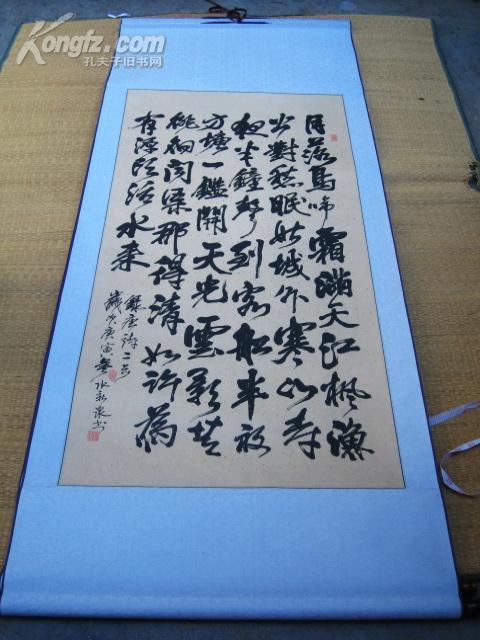 Kongfz.com
孔夫子旧书网
月落烏啼霜滿天江楓漁
火對愁眠姑城外寒山寺
夜半鐘聲到客船半畝
方塘一鑑開天光雲影共
徘徊問渠那得清如許為
有源頭活水來
錄唐詩二首
歲次庚寅水泉書